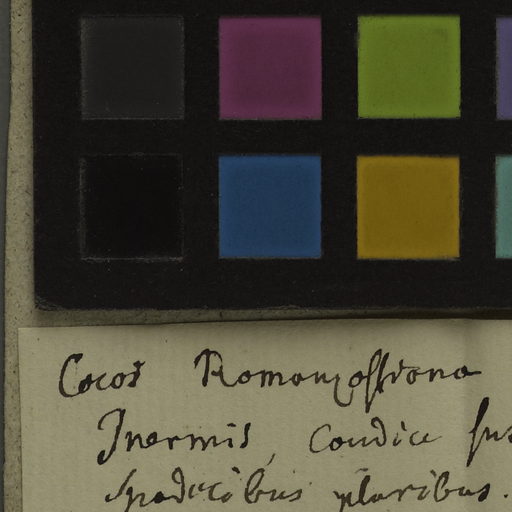 Cocos Romanzoffiana
Inermis, Caudice
Spadicibus pluribus.